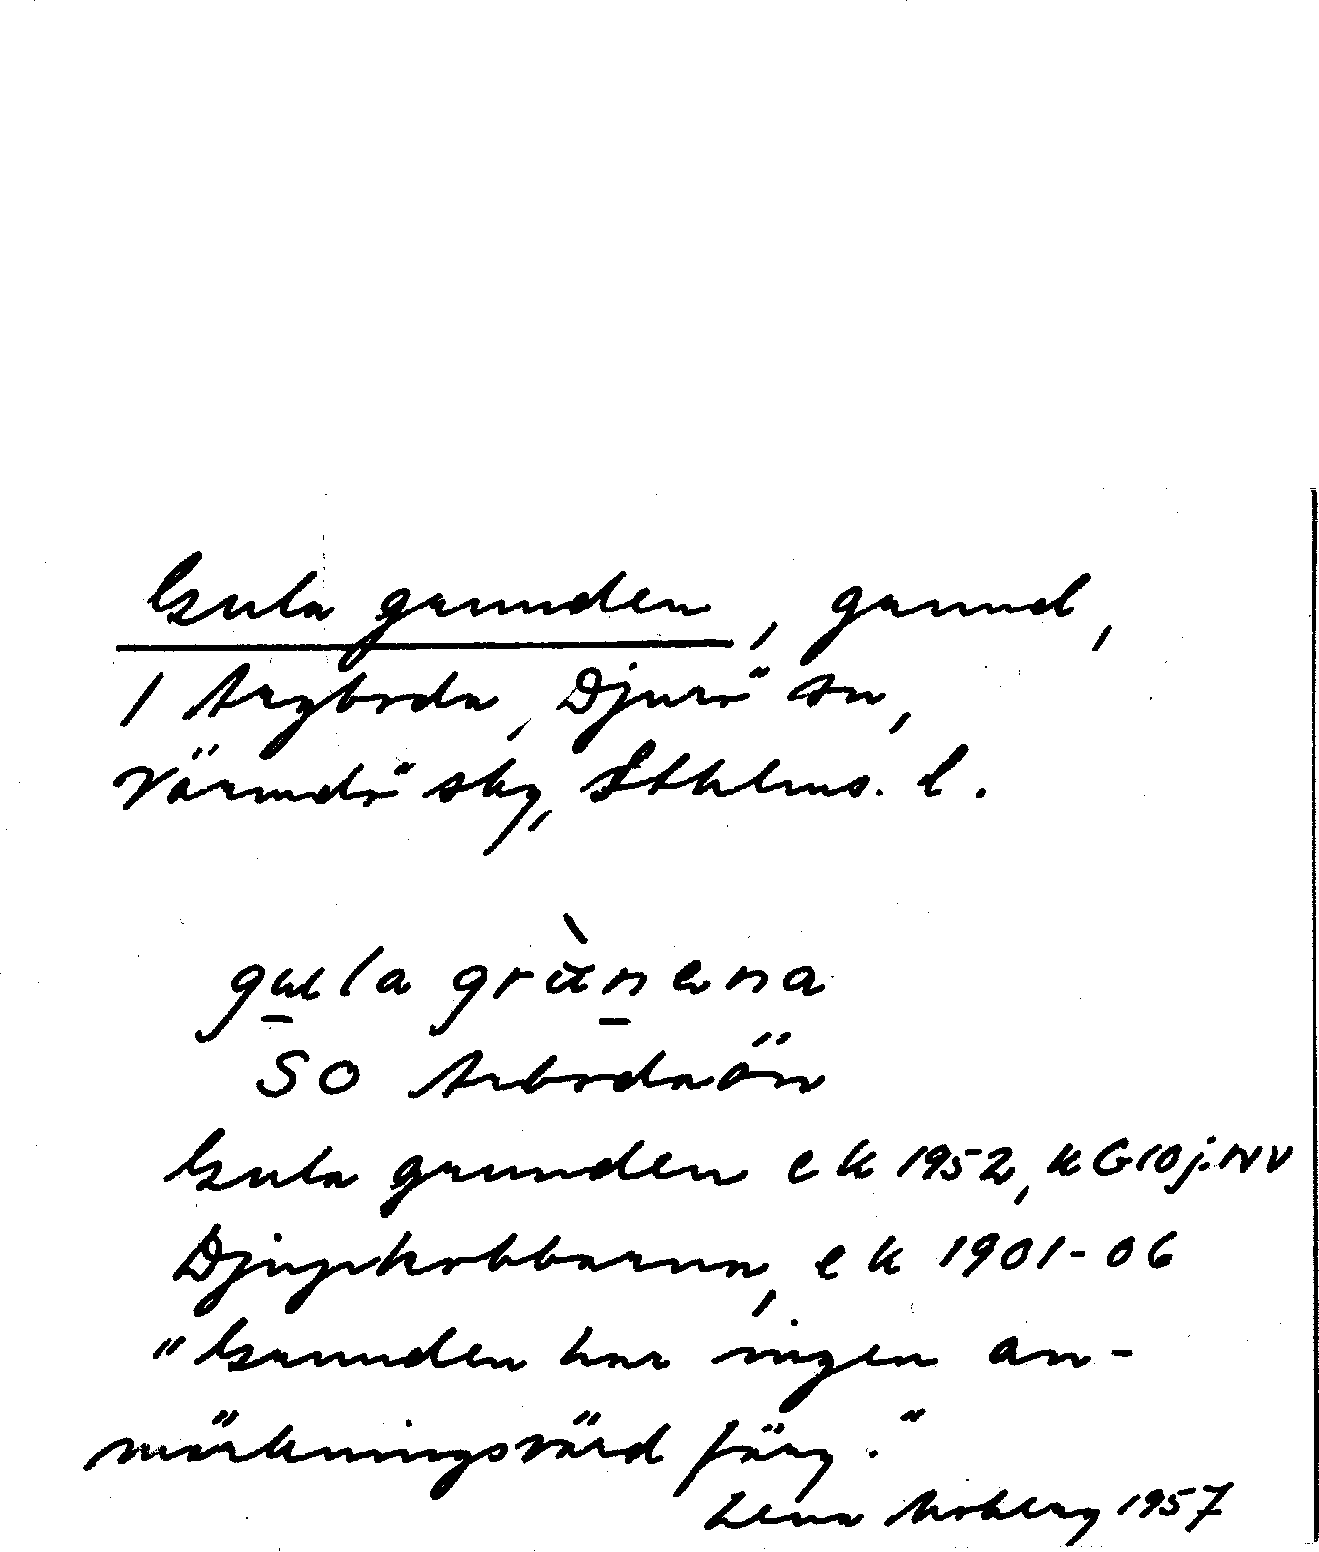 Gula grunden, grund,
1 Argboda, Djurö sn,
Värmdö skg, Sthlms. l.
gula grùnena
SO Arbodaön
Gula grunden ek 1952, k G10j.NV
Djupkobbarna, ek 1901-06
"Grunden har ingen an-
märkningsvärd färg."
Lena Moberg 1957